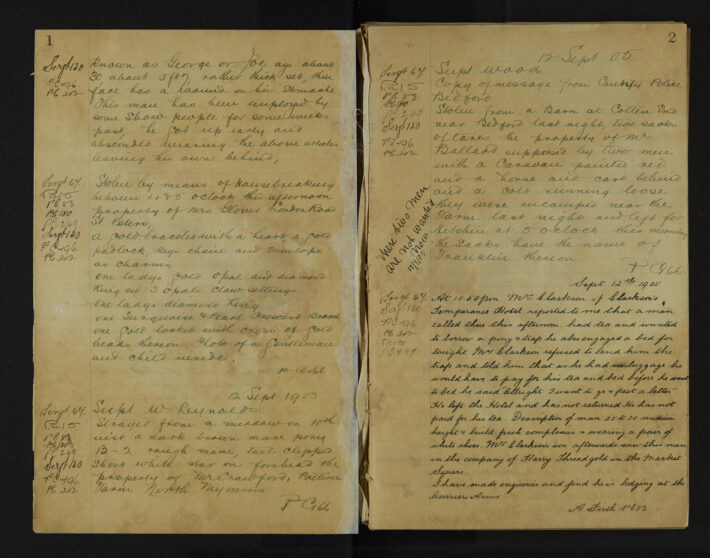 1
Sergt 130
PC 496
PC 202
Known as George or Joe age about
30 about 5ft 7 rather thick set, thin
face has a wound on his Stomache
This man has been employed by
some Show people for some weeks
past, he got up early and
absconded wearing the above articles
leaving his own behind.
Sergt 64
PC 15
PC 83
PC 180
PC 269
Sergt 130
PC 496
PC 202
Stolen by means of Housebreaking
between 4 & 5 oclock this afternoon
property of Mrs Glover London Road
St Peters,
A Gold bracelet with a heart, a gold
padlock, keys chain and envelope
as charms,
one ladys Gold Opal and diamond
Ring set 3 opals Claw setting.
one ladys diamond Ring
one Turquoise & Pearl Crescent Brooch
one Gold locket with cross of Gold
beads thereon Photo of a Gentleman
and child inside.
P Cobb
12 Sept 1905
Sergt 64
PC 15
PC 83
PC 180
PC 269
Sergt 130
PC 496
PC 202
Supt W Reynolds
Strayed from a meadow on 10th
inst a dark brown mare pony
12-2 rough mane, tail clipped
short white star on forehead the
property of Mr Crawford, Potterels
Farm North Mymms
P Cobb
2
12 Sept 05
Sergt 64
PC 15
PC 83
PC 180
Sergt 130
PC 496
PC 202
Supt Wood
Copy of message from County Police
Bedford
Stolen from a Barn at Cotton End
near Bedford last night two sacks
of tares the property of Mr
Ballard supposed by two men
with a Caravan painted red
and a horse and cart behind
and a colt running loose
they were encamped near the
Farm last night and left for
Hitchin at 5 oclock this morning
the Sacks have the name of
Franklin thereon
P Cobb
These two men
are not wanted
now.
Sept 12th 1905
Sergt 64
Sergt 130
PC 496
PC 202
PC 15
PC 269
At 10.50pm Mrs Clarkson of Clarkson's
Temperance Hotel reported to me that a man
called there this afternoon had tea and wanted
to borrow a pony & trap he also engaged a bed for
tonight Mrs Clarkson refused to lend him the
trap and told him that as he had no luggage he
would have to pay for his tea and bed before he went
to bed he said "Allright I want to go & post a letter"
He left the Hotel and has not returned He has not
paid for his tea. Description of man 25 to 30 medium
height & build fresh complexion & wearing a pair of
white shoes. Mrs Clarksons son afterwards saw this man
in the company of Harry Threadgold in the Market
Square.
I have made enquiries and find he is lodging at the
Carriers Arms
A Firth PC 83